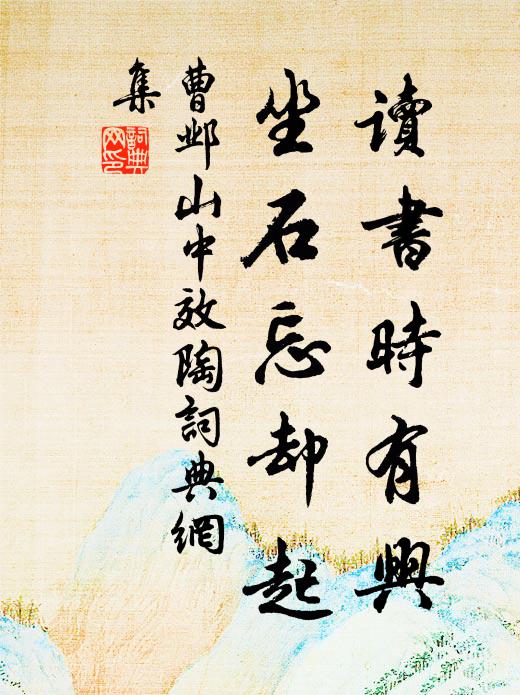 讀書時有興
坐石忘却起
曹邺山中效陶詞典網
集
詞典
网印